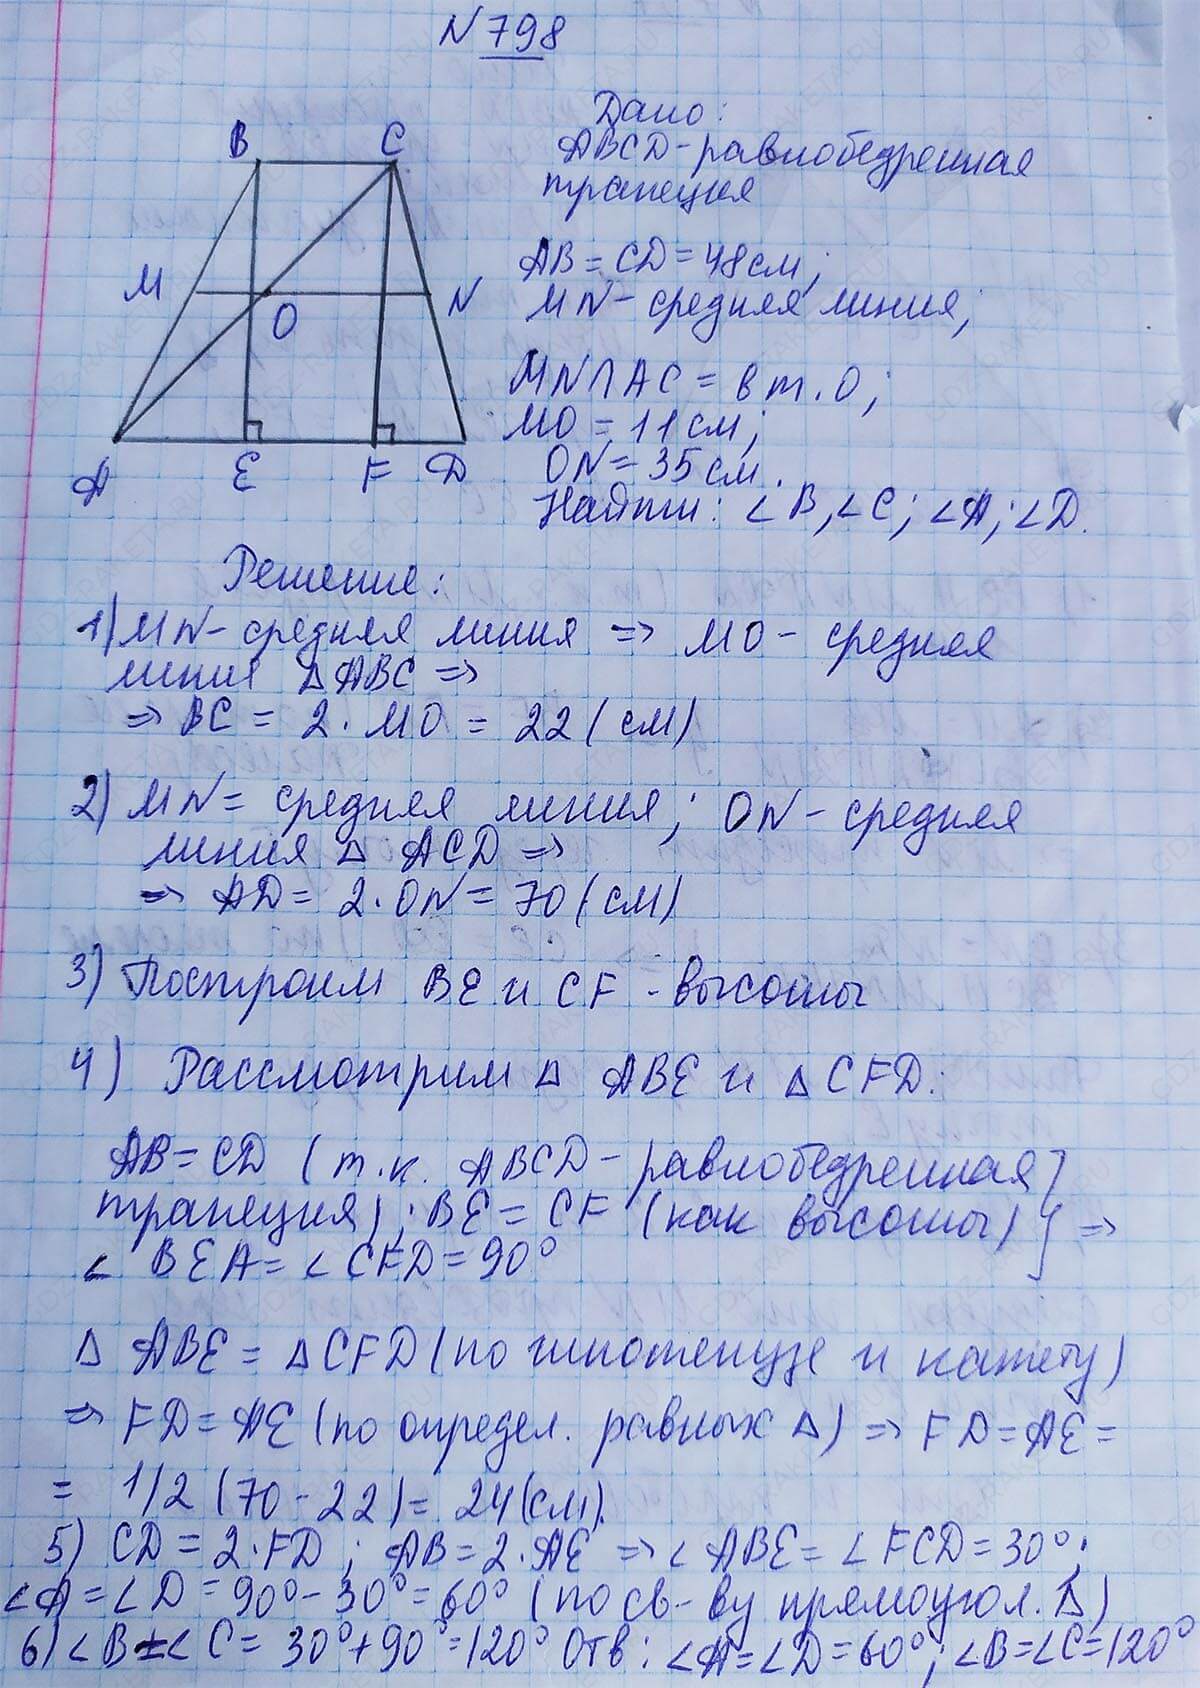 N 798
Дано:
B C
ABCD - равнобедренная
трапеция
AB = CD = 48 см;
M N
MN - средняя линия;
O
MN∩AC = в т. О;
MO = 11 см;
ON = 35 см.
A E F D
Найти: ∠B, ∠C; ∠A; ∠D.
Решение:
1) MN - средняя линия => MO - средняя
линия △ ABC =>
=> BC = 2 · MO = 22 (см)
2) MN = средняя линия; ON - средняя
линия △ ACD =>
=> AD = 2 · ON = 70 (см)
3) Построим BE и CF - высоты
4) Рассмотрим △ ABE и △ CFD:
AB = CD (т.к. ABCD - равнобедренная
трапеция); BE = CF (как высоты) } =>
∠ BEA = ∠ CFD = 90°
△ ABE = △ CFD (по гипотенузе и катету)
=> FD = AE (по определ. равных △) => FD = AE =
= 1/2 (70 - 22) = 24 (см).
5) CD = 2 · FD ; AB = 2 · AE => ∠ ABE = ∠ FCD = 30°;
∠A = ∠D = 90° - 30° = 60° (по св-ву прямоугол. △)
6) ∠B = ∠C = 30° + 90° = 120° Отв: ∠A = ∠D = 60°; ∠B = ∠C = 120°